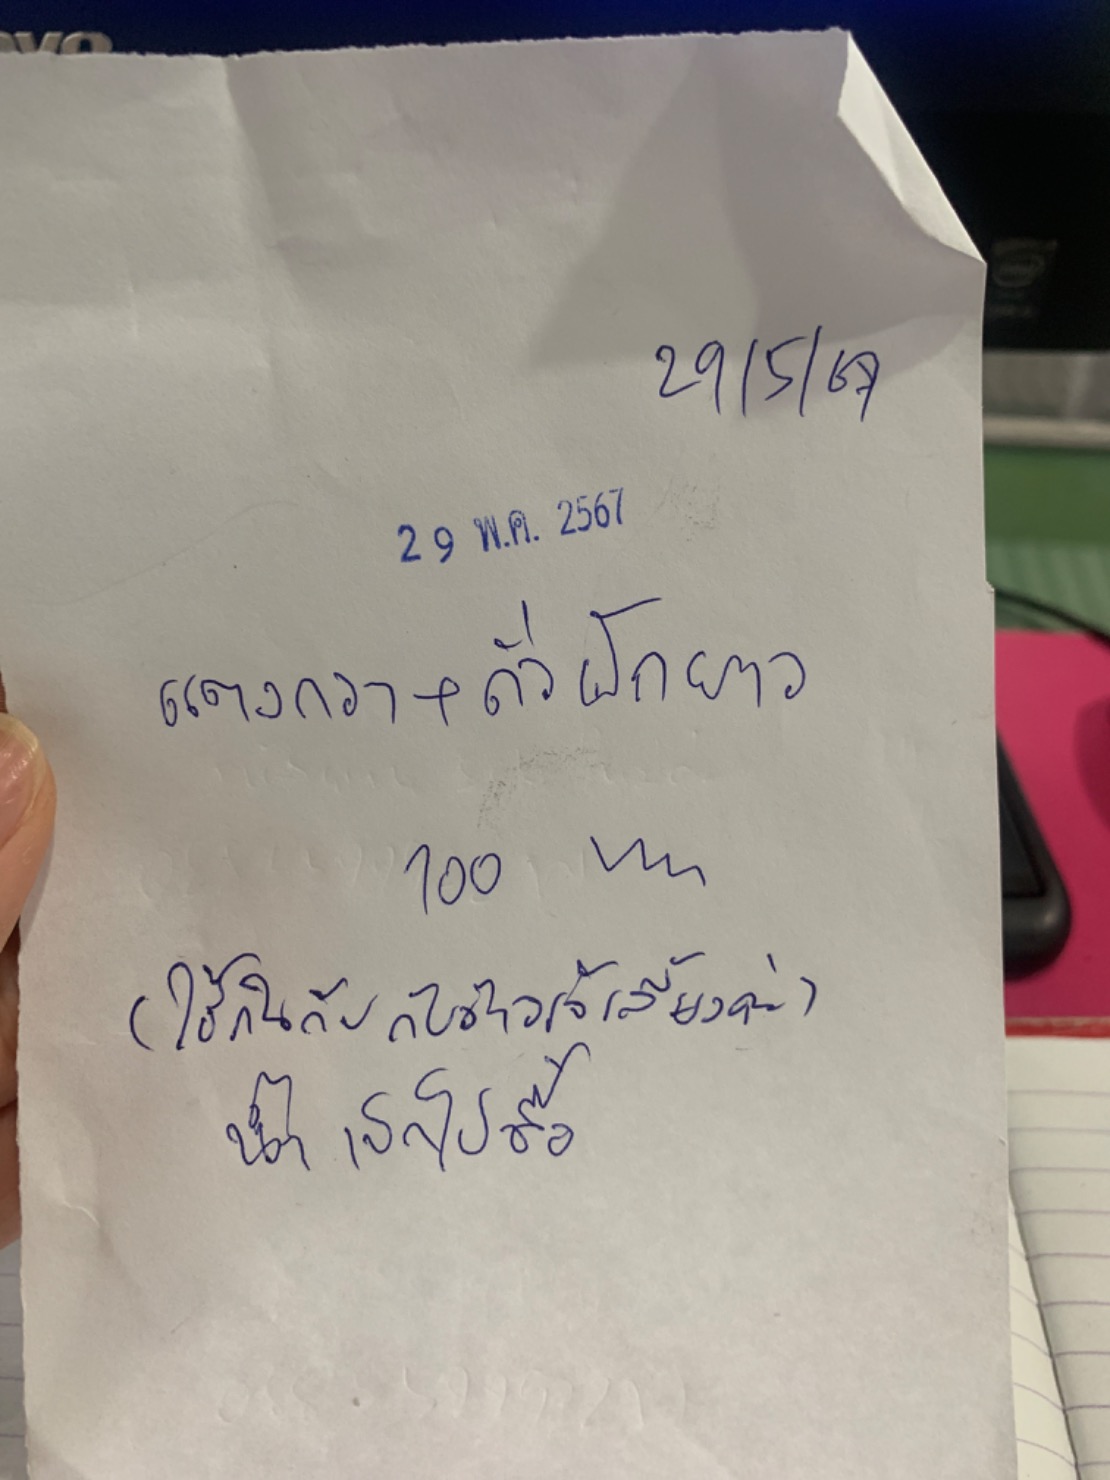 29/5/67
29 พ.ค. 2567
แตงกวา + ถั่วฝักยาว
100 บาท
(ใช้กินกับ กับข้าวเจ้เลี้ยงค่ะ)
น้ำ เบิกไปซื้อ